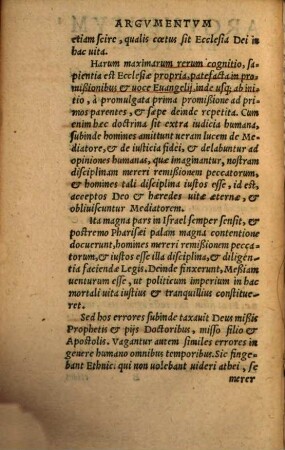 ARGVMENTVM
etiam scire, qualis cœtus sit Ecclesia Dei in
hac uita.
Harum maximarum rerum cognitio, sa-
pientia est Ecclesiæ propria, patefacta in pro-
mißionibus & uoce Euangelij, inde usq; ab ini-
tio, à promulgata prima promißione ad pri-
mos parentes, & sæpe deinde repetita. Cum
enim hæc doctrina sit extra iudicia humana,
subinde homines amittunt ueram lucem de Me-
diatore, & de iusticia fidei, & delabuntur ad
opiniones humanas, quæ imaginantur, nostram
disciplinam mereri remißionem peccatorum,
& homines tali disciplina iustos esse, id est,
acceptos Deo & hæredes uitæ æternæ, &
obliuiscuntur Mediatorem.
Ita magna pars in Israel semper sensit, &
postremo Pharisæi palam magna contentione
docuerunt, homines mereri remißionem pecca-
torum, & iustos esse illa disciplina, & diligen-
tia faciendæ Legis. Deinde finxerunt, Meßiam
uenturum esse, ut politicum imperium in hac
mortali uita iustius & tranquillius constitue-
ret.
Sed hos errores subinde taxauit Deus mißis
Prophetis & pijs Doctoribus, misso filio &
Apostolis. Vagantur autem similes errores in
genere humano omnibus temporibus. Sic finge-
bant Ethnici qui non uolebant uideri athei, se
merer